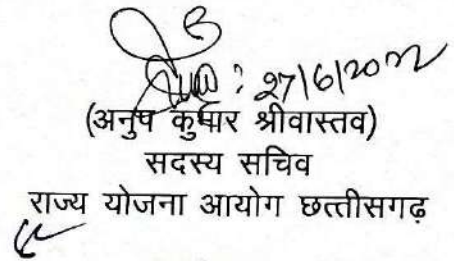 27/6/2022
(अनुप कुमार श्रीवास्तव)
सदस्य सचिव
राज्य योजना आयोग छत्तीसगढ़